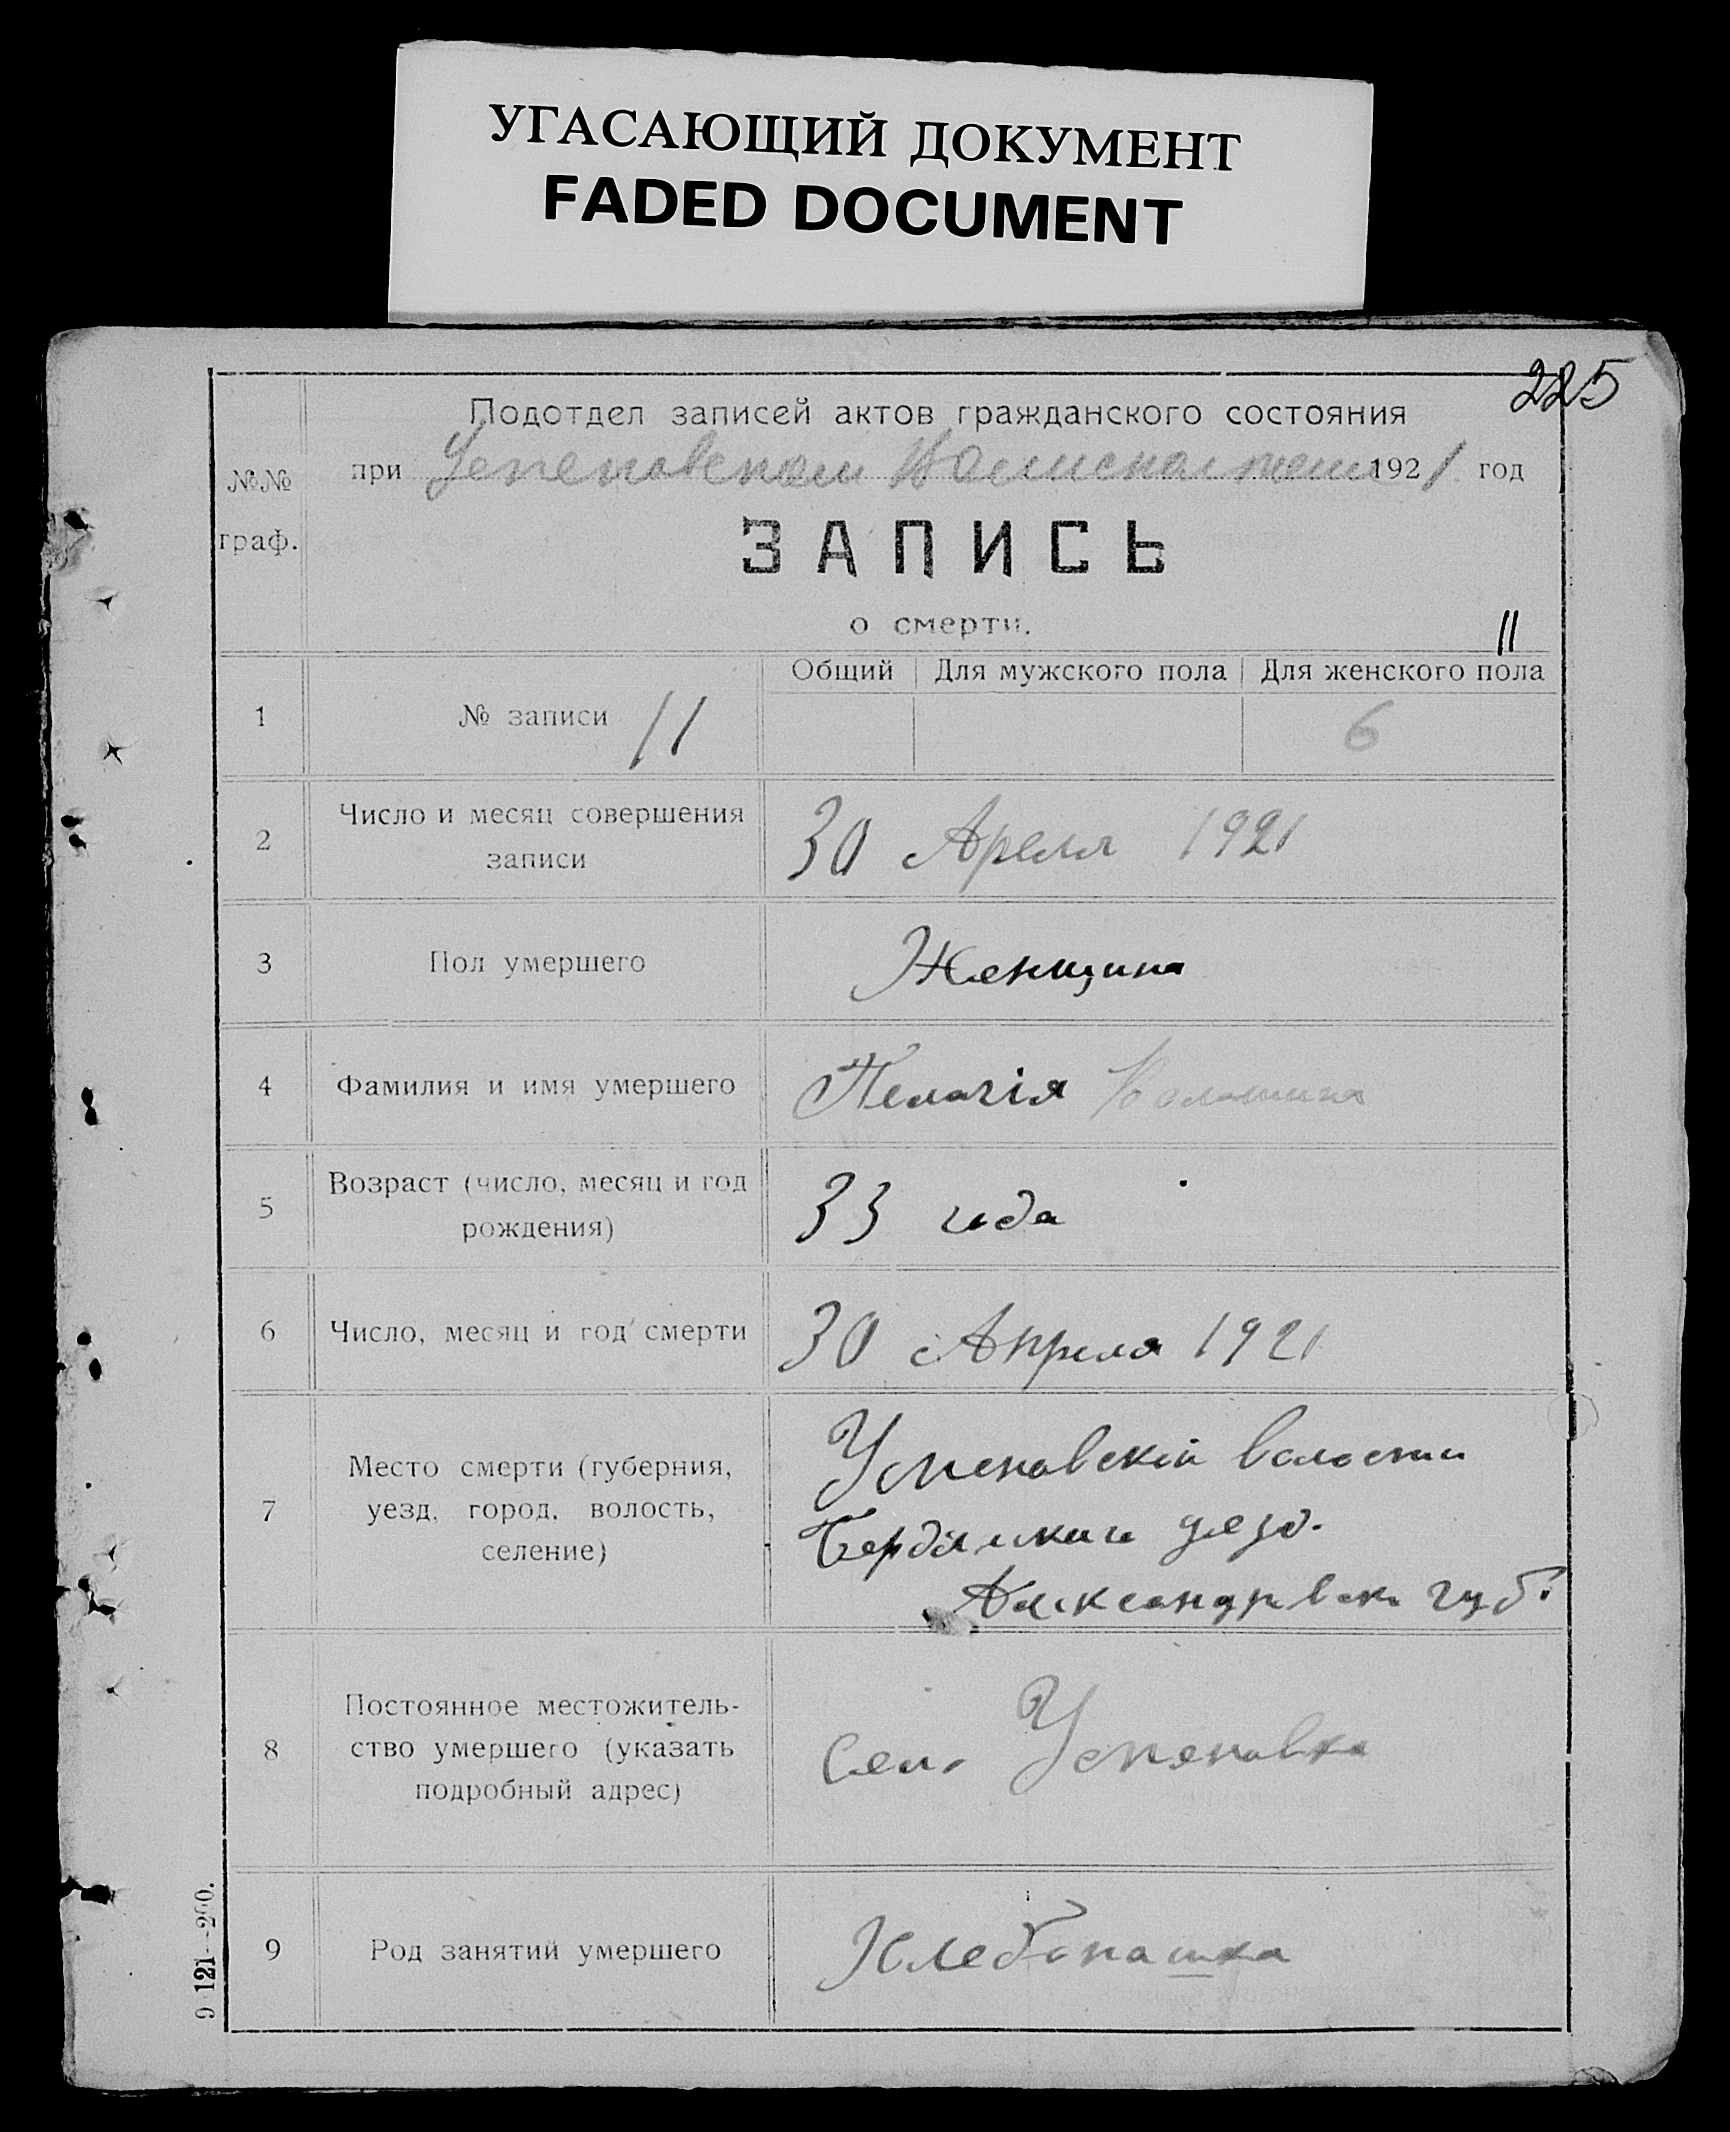 УГАСАЮЩИЙ ДОКУМЕНТ
FADED DOCUMENT
225
Подотдел записей актов гражданского состояния
№№ граф.
при Успеновском 1921 год
ЗАПИСЬ
о смерти.
11
Общий Для мужского пола Для женского пола
1 № записи 11 6
2 Число и месяц совершения
записи
30 Апреля 1921
3 Пол умершего Женщина
4 Фамилия и имя умершего Пелагія
5 Возраст (число, месяц и год
рождения)
33 года
6 Число, месяц и год смерти 30 Апреля 1921
7 Место смерти (губерния,
уезд, город, волость,
селение)
Успеновскій волости
Бердянскаго уезд.
Александровск губ.
8 Постоянное местожитель-
ство умершего (указать
подробный адрес)
Село Успеновка
9 Род занятий умершего Хлебопашка
9 121—200.